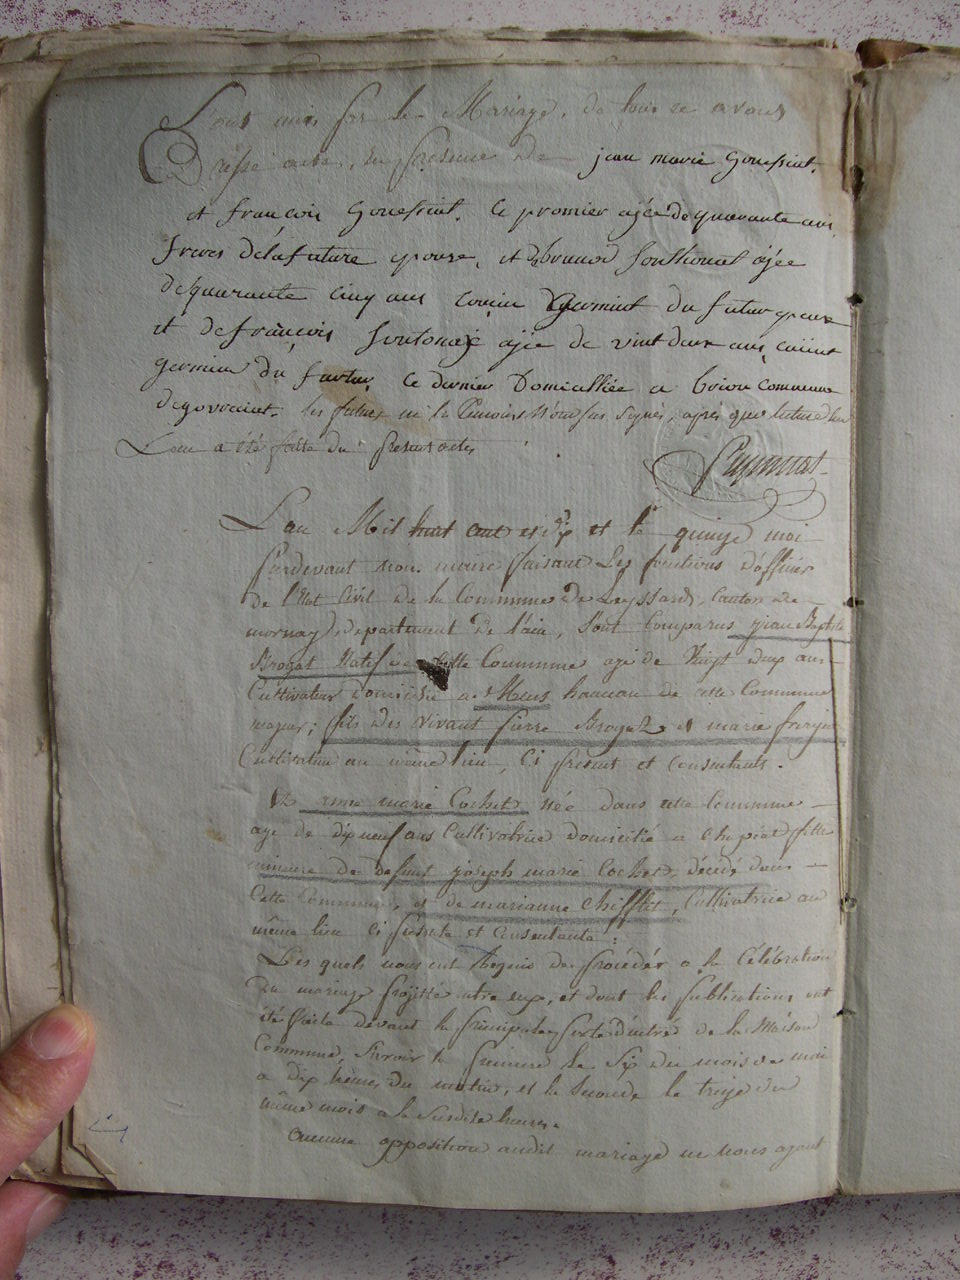 Sont unis par le Mariage, de tout ce avons
Dressé acte, en presence de jean marie Goussiut.
et françois Goussiut. Ce promier ajée de quarante ans,
freres de la future epouse, et de Soutounat ajée
de quarante cinq ans cousin Germint du futur epoux
et de françois Soutonax ajée de vint deux ans, cousint
germin du futur, Ce dernier Domicilliée a brion commune
de les futurs ni le temoins N'ont pas Signés, après que lecture
Leur a été faitte du present acte,
L'an Mil huit cent et dix et le quinze mai
Pardevant Nous maire faisant Les fonctions d'officier
de l'Etat Civil de la Commune de Leyssard, Canton de
mornay, departement de l'ain, Sont Comparus jean Baptiste
Broyat Natif de cette Commune agé de Vingt deux ans
Cultivateur Domicilié a Mens hameau de cette Commune
majeur; fils des Vivant pierre Broyat et marie
Cultivateur au même lieu, Ci present et Consentants.
Et anne marie Cochet Née dans cette Commune
age de dix neuf ans Cultivatrice Domicilié a Chapiat fille
mineure de defunt joseph marie Cochet, décédé dans
Cette Commune, et de marianne Chifflet, Cultivatrice au
même lieu Ci présente et Consentante:
Les quels nous ont Requis de procéder a la Célébration
du mariage projetté entre eux, et dont les publications ont
été faite devant la principale porte d'entrée de la Maison
Commune, Savoir la premiere le Six du mois de mai
a dix heure, du matin, et la seconde le treize du
même mois a la Susdite heure.
Aucune opposition audit mariage ne Nous ayant